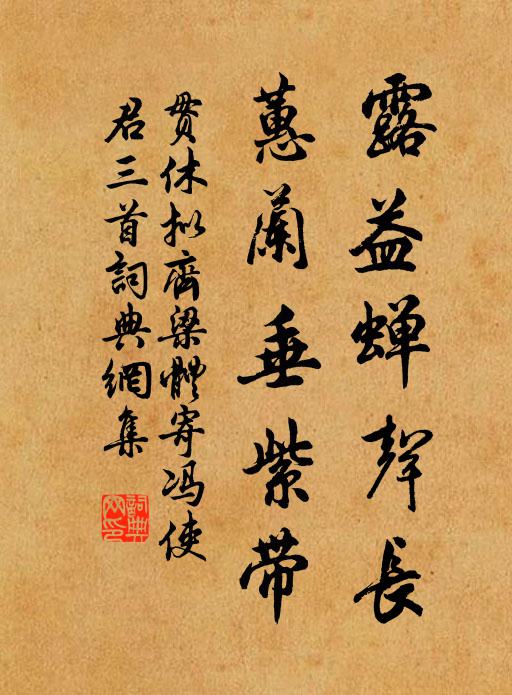 露益蝉聲長
蕙蘭垂紫带
貫休拟齊梁體寄冯使
君三首詞典網集
詞典網印